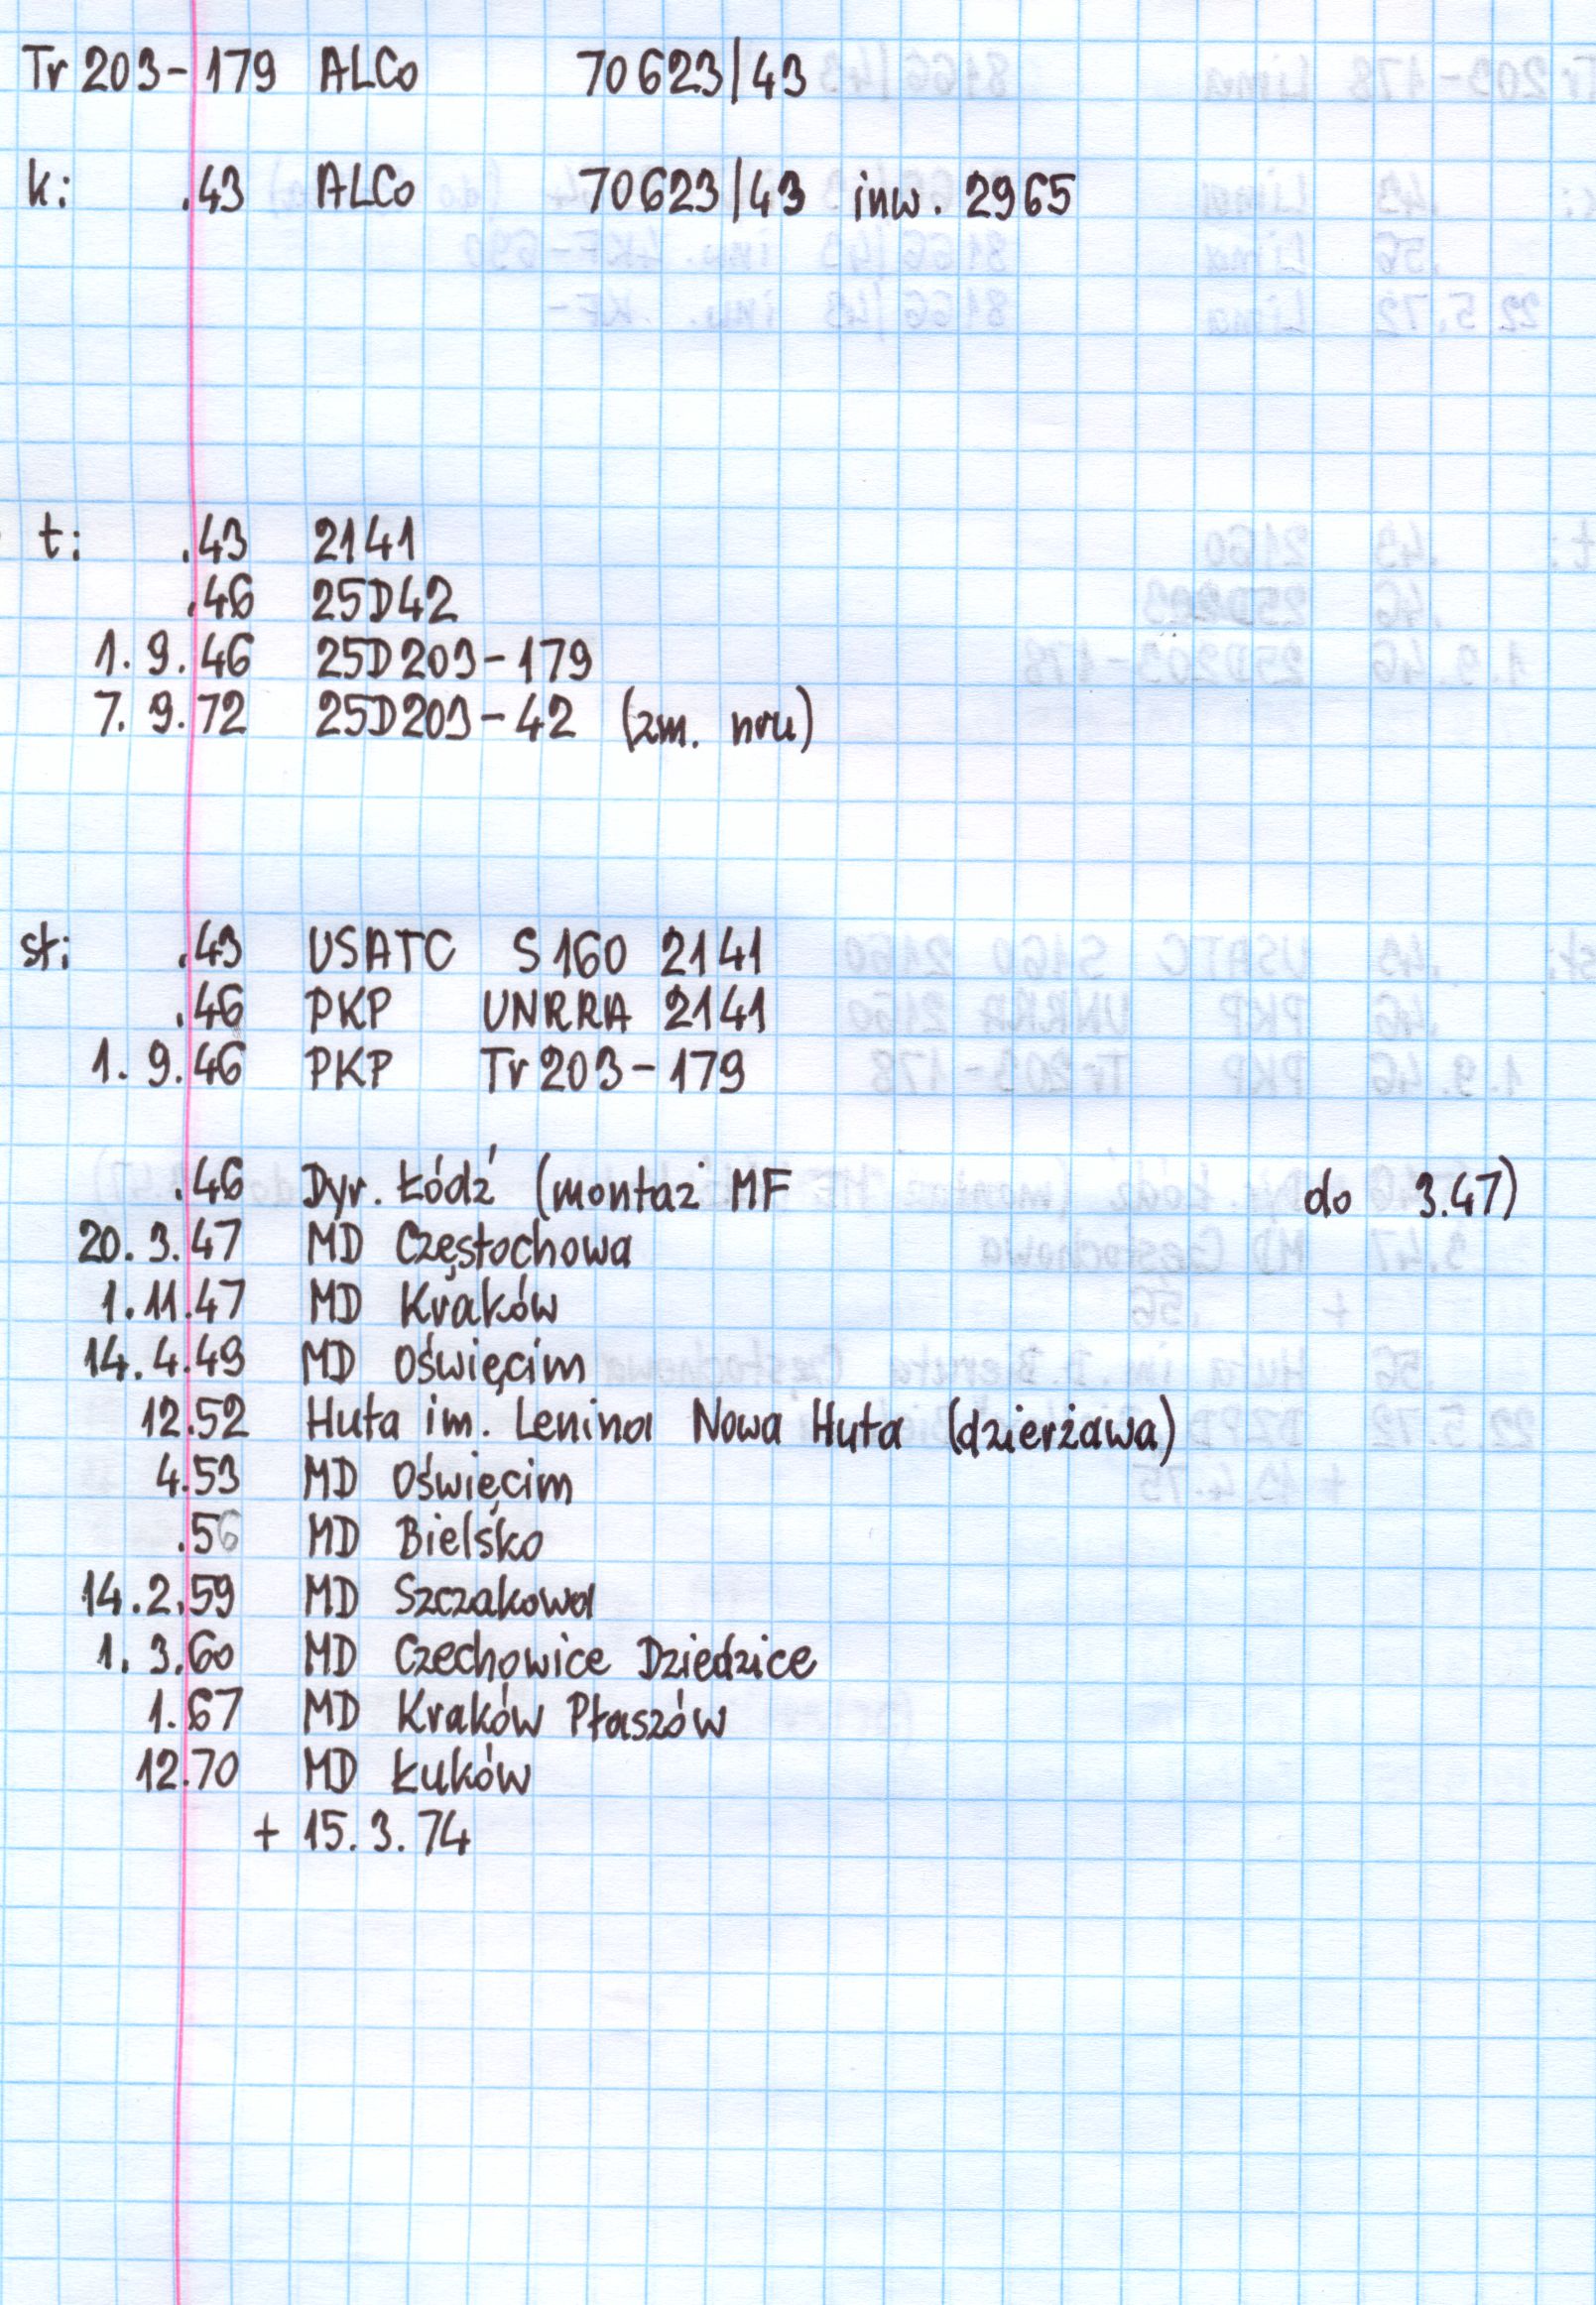 Tr 203-179 ALCo 70623/43
k: .43 ALCo 70623/43 inw. 2965
t: .43 2141
.46 25D42
1. 9. 46 25D203-179
7. 9. 72 25D203-42 (zm. nru)
st: .43 USATC S160 2141
.46 PKP UNRRA 2141
1. 9. 46 PKP Tr 203-179
.46 Dyr. Łódź (montaż MF do 3.47)
20. 3. 47 MD Częstochowa
1. 11. 47 MD Kraków
14. 4. 49 MD Oświęcim
12.52 Huta im. Lenina Nowa Huta (dzierżawa)
4.53 MD Oświęcim
.56 MD Bielsko
14. 2. 59 MD Szczakowa
1. 3. 60 MD Czechowice Dziedzice
1. 67 MD Kraków Płaszów
12.70 MD Łuków
+ 15. 3. 74